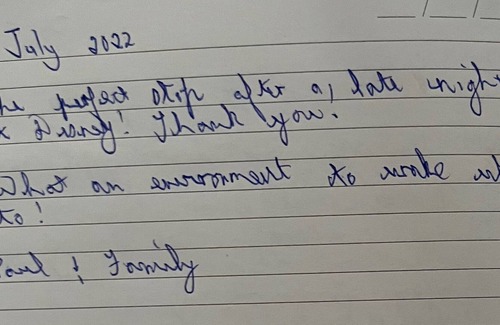 July 2022
he perfect stop after a late nigh
x Disney! Thank you!
What an environment to wake u
to!
aul & Family